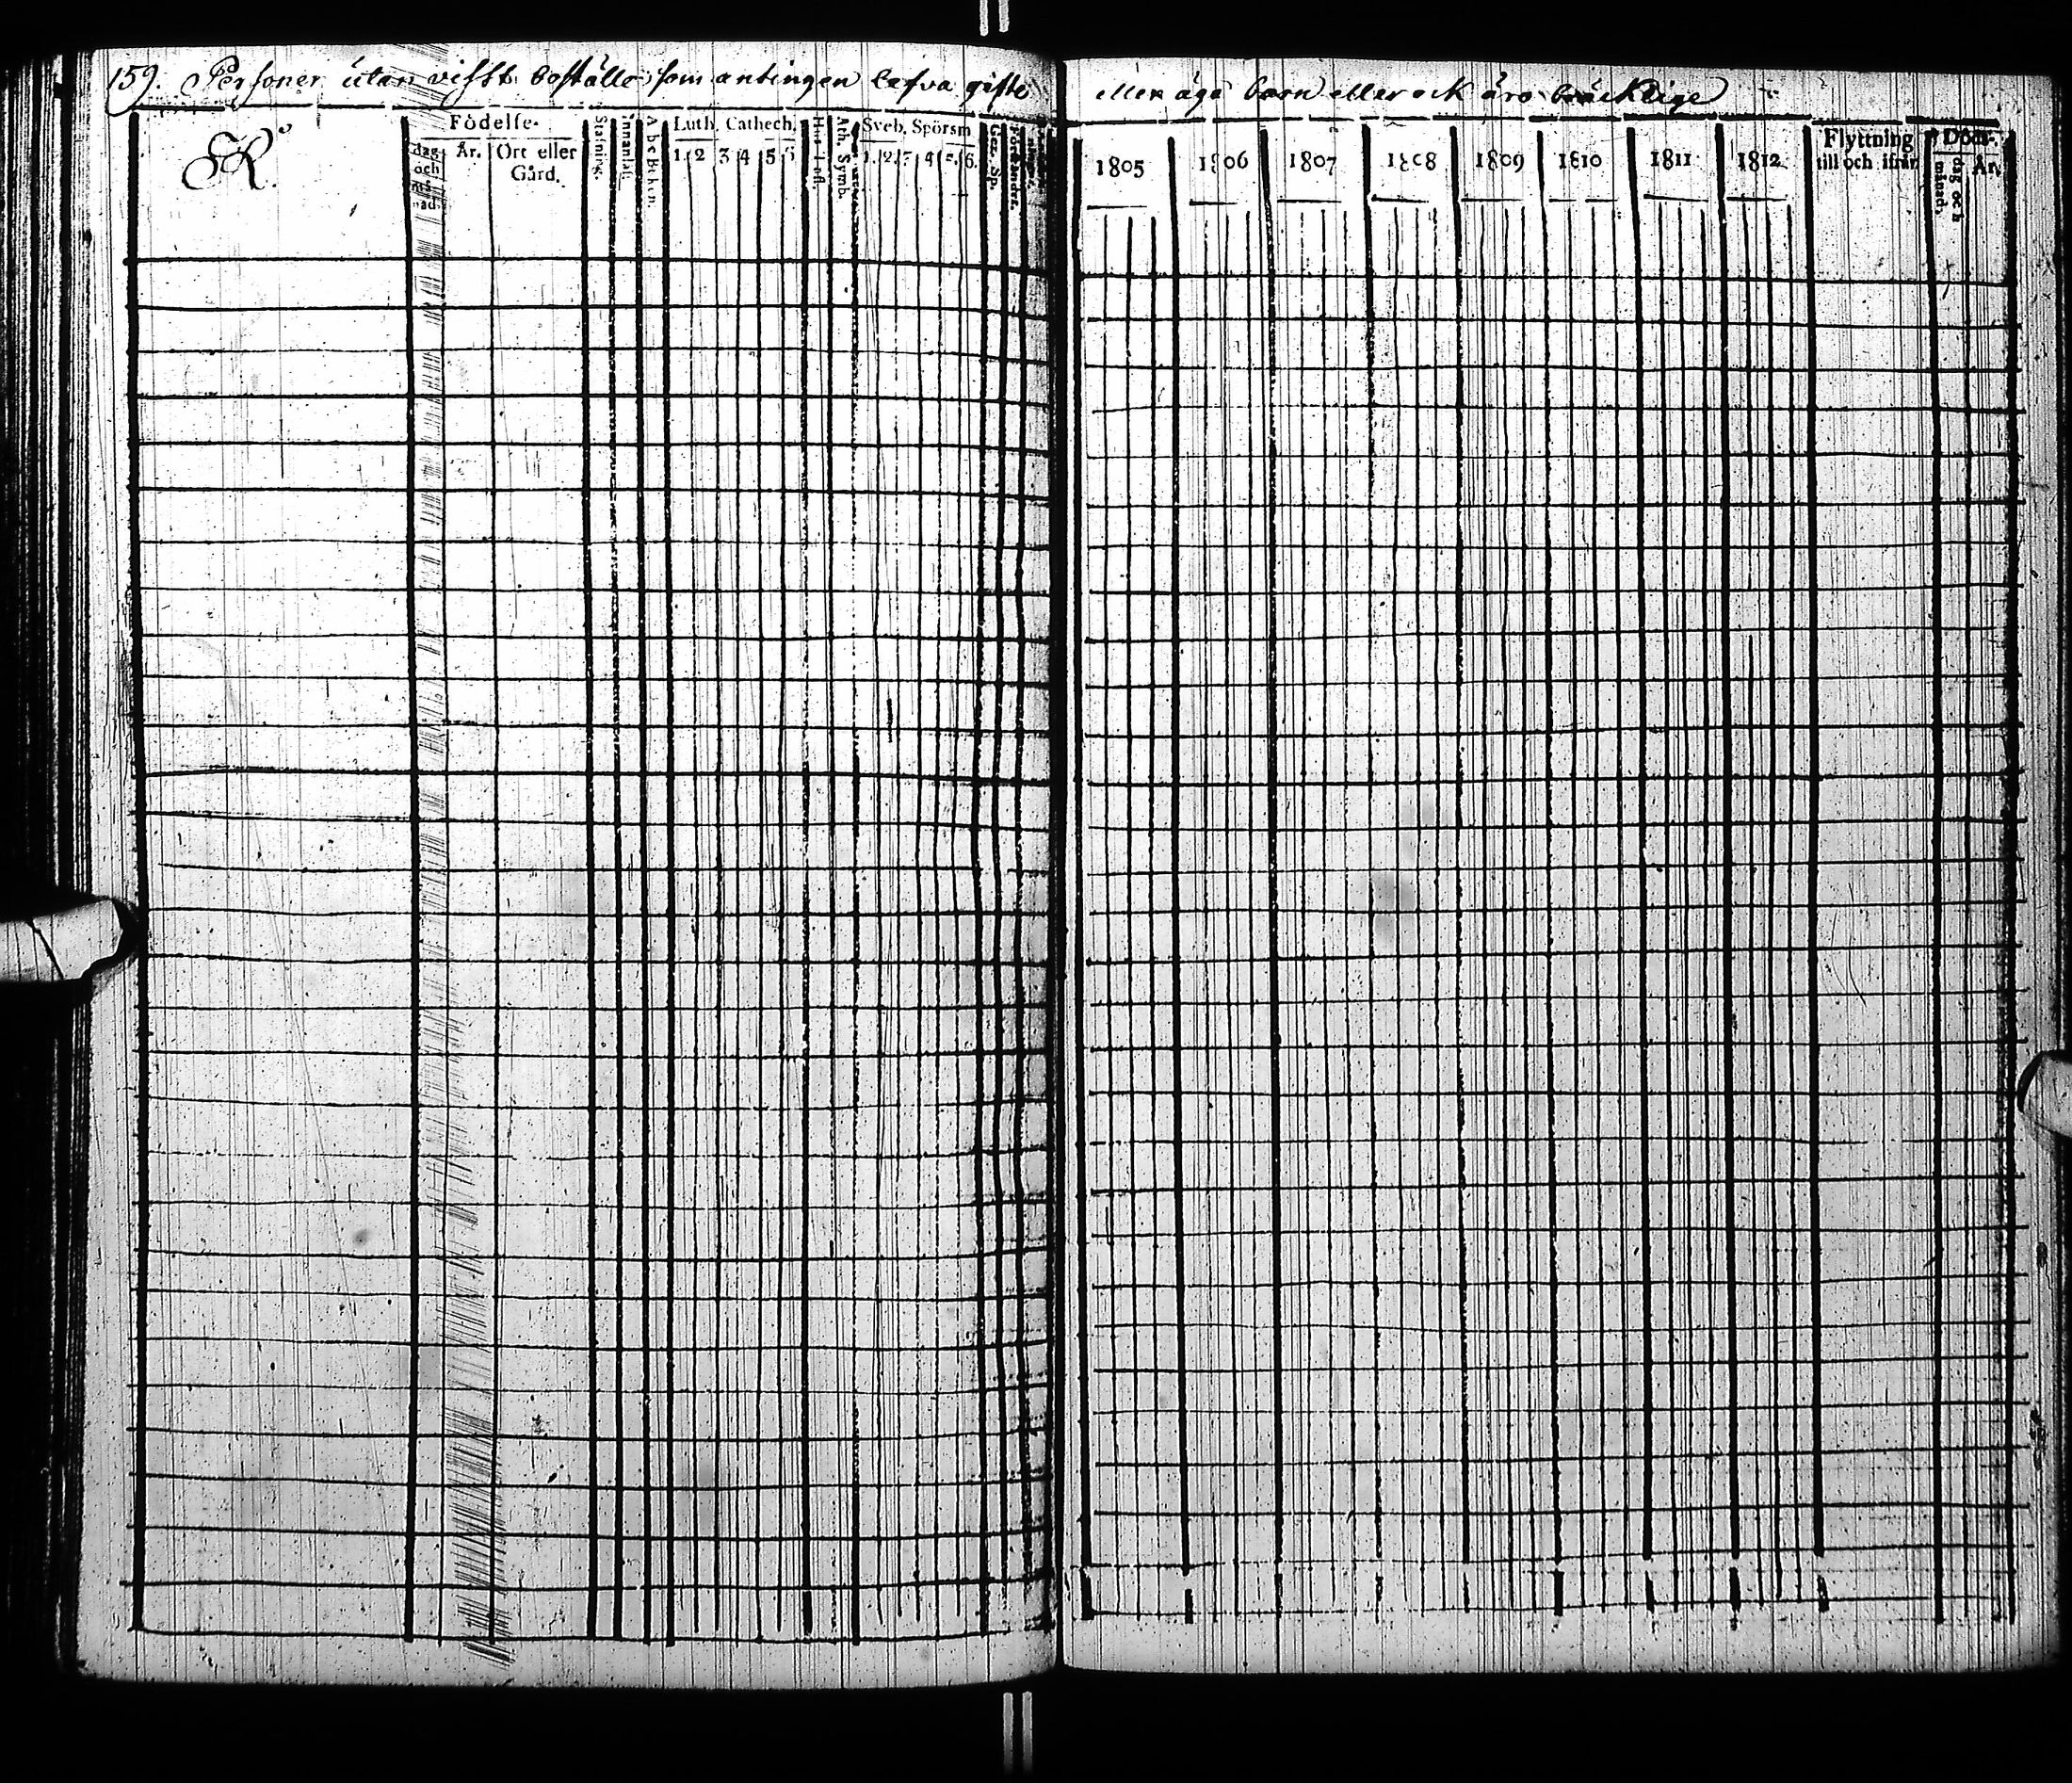 159. Personer utan visst boställe som antingen lefva gifte
eller äga barn eller ock äro bräcklige
K.
Födelse-
dag och månad.
År.
Ort eller Gård.
Stafning.
Innanläs.
A b c Boken.
Luth. Cathech.
1. 2 3 4 5 6
Ath. Symb.
Sveb. Spörsm
1. 2. 3 4 5. 6.
Gez. Sp.
1805 1806 1807 1808 1809 1810 1811 1812
Flyttning
till och ifrån
Döds-
dag och månad.
År.